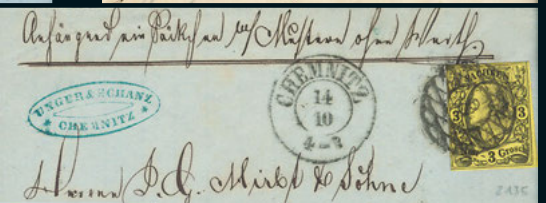 Anhängend ein Päckchen mit Mustern ohne Werth.
UNGER & SCHANZ
CHEMNITZ
CHEMNITZ
14
10
3
3
3
Herren J. G. Mirbt & Söhne
2135